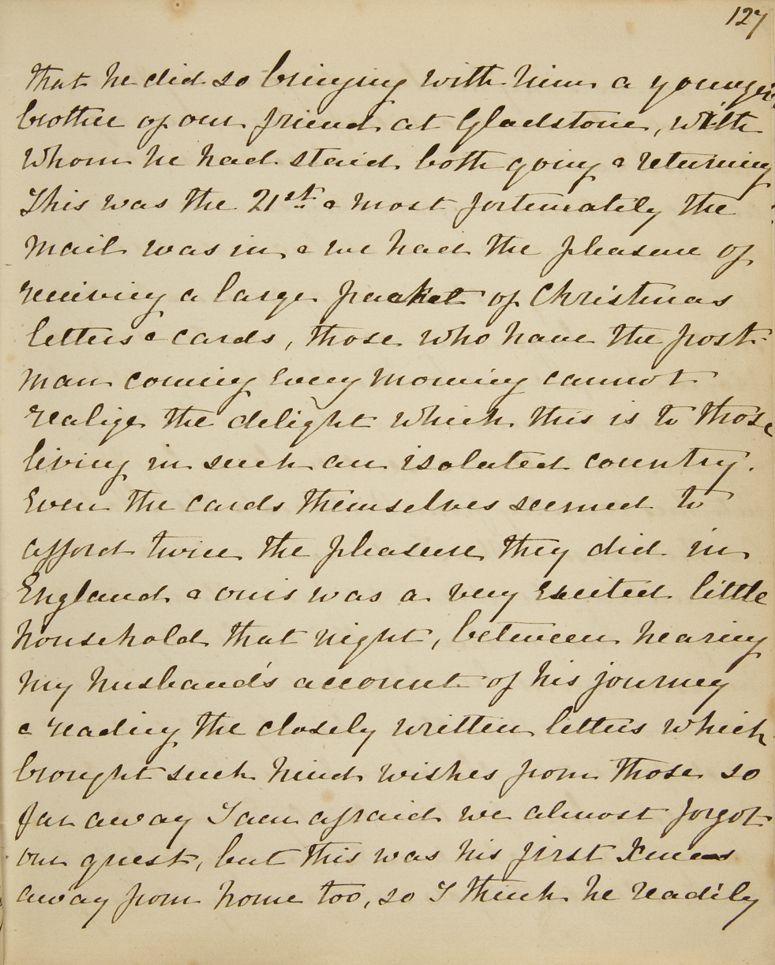 127
that he did so bringing with him a younger
brother of our friend at Gladstone, with
whom he had staid both going & returning
This was the 21st & most fortunately the
mail was in & we had the pleasure of
receiving a large packet of Christmas
letters & cards, those who have the post-
man coming every morning cannot
realize the delight which this is to those
living in such an isolated country.
Even the cards themselves seemed to
afford twice the pleasure they did in
England & ours was a very excited little
household that night, between hearing
my husband's account of his journey
& reading the closely written letters which
brought such kind wishes from those so
far away I am afraid we almost forgot
our guest, but this was his first Xmas
away from home too, so I think he readily